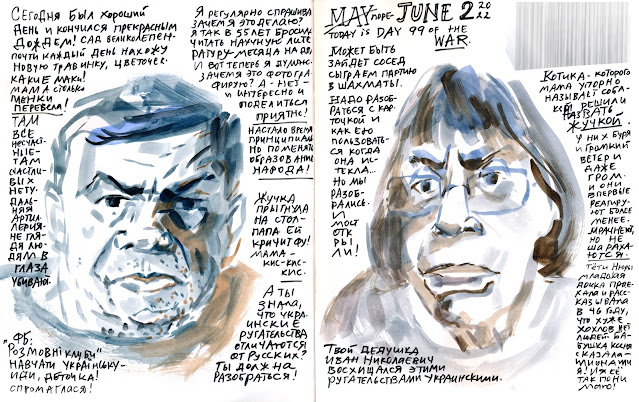 СЕГОДНЯ БЫЛ ХОРОШИЙ
ДЕНЬ И КОНЧИЛСЯ ПРЕКРАСНЫМ
ДОЖДЕМ! САД ВЕЛИКОЛЕПЕН-
ПОЧТИ КАЖДЫЙ ДЕНЬ НАХОЖУ
НОВУЮ ТРАВИНКУ, ЦВЕТОЧЕК-
КАКИЕ МАКИ!
МАМА СТОЛЬКО
ПЕРЕВЕЛА!
ТАМ
ВСЕ
НЕСЧАСТ
НЫЕ-
ТАМ
СЧАСТЛИ-
ВЫХ
НЕТУ-
ДАЛЬ-
НЯЯ
АРТИЛ-
ЛЕРИЯ-
НЕ ГЛЯ-
ДЯ ЛЮ-
ДЯМ В
ГЛАЗА
УБИВАЮТ.
"ФБ:
РОЗМОВНІ КЛУБИ"
НАВЧАТИ УКРАЇНСЬКУ-
ИДИ, ДЕТОЧКА!
СПРОМАГЛАСЯ!
Я РЕГУЛЯРНО СПРАШИВА
ЗАЧЕМ Я ЭТО ДЕЛАЮ?
Я ТАК В 55 ЛЕТ БРОСИЛ
ЧИТАТЬ НАУЧНУЮ ЛИТЕ
РАТУРУ- МЕСЯЦА НА ДВА
И ВОТ ТЕПЕРЬ Я ДУМАЮ-
ЗАЧЕМ ЭТО ФОТОГРА-
ФИРУЮ? А - НЕТ -
И ИНТЕРЕСНО И
ПОДЕЛИТЬСЯ
ПРИЯТНО!
НАСТАЛО ВРЕМЯ
ПРИНЦИПИАЛЬ
НО ПОМЕНЯТЬ
ОБРАЗОВАНИЕ
НАРОДА!
ЖУЧКА
ПРЫГНУЛА
НА СТОЛ-
ПАПА ЕЙ
КРИЧИТ ФУ!
МАМА -
КИС-КИС-
КИС.
А ТЫ
ЗНАЛА,
ЧТО УКРА-
ИНСКИЕ
РУГАТЕЛЬСТВА
ОТЛИЧАЮТСЯ
ОТ РУССКИХ?
ТЫ ДОЛЖНА
РАЗОБРАТЬСЯ!
MAY JUNE 2 2022
TODAY IS DAY 99 OF THE
WAR.
МОЖЕТ БЫТЬ
ЗАЙДЕТ СОСЕД
СЫГРАЕМ ПАРТИЮ
В ШАХМАТЫ.
НАДО РАЗОБ-
РАТЬСЯ С КАР-
ТОЧКОЙ И
КАК ЕЮ
ПОЛЬЗОВАТЬ-
СЯ КОГДА
ОНА ИС-
ТЕКЛА...
НО МЫ
РАЗОБ-
РАЛИСЬ.
И
МОСТ
ОТК
РЫ
ЛИ!
ТВОЙ ДЕДУШКА
ИВАН НИКОЛАЕВИЧ
ВОСХИЩАЛСЯ ЭТИМИ
РУГАТЕЛЬСТВАМИ УКРАИНСКИМИ.
КОТИКА - КОТОРОГО
МАМА УПОРНО
НАЗЫВАЕТ СОБА-
КОЙ РЕШИЛИ
НАЗВАТЬ
ЖУЧКОЙ.
У НИХ БУРЯ
И ГРОМКИЙ
ВЕТЕР И
ДАЖЕ
ГРОМ.
И ОНИ
ВПЕРВЫЕ
РЕАГИРУ-
ЮТ БОЛЕЕ
МЕНЕЕ.
НО НЕ
ША РАХА-
ЮТСЯ.
МЛАДШАЯ
ДОЧКА ПРИЕ-
ХАЛА И РАСС-
КАЗЫВАЛА
В 46 ГОДУ,
ЧТО ХУЖЕ
ХОХЛОВ НЕТ
ЛЮДЕЙ. БА-
БУШКА
СКАЗАЛА-